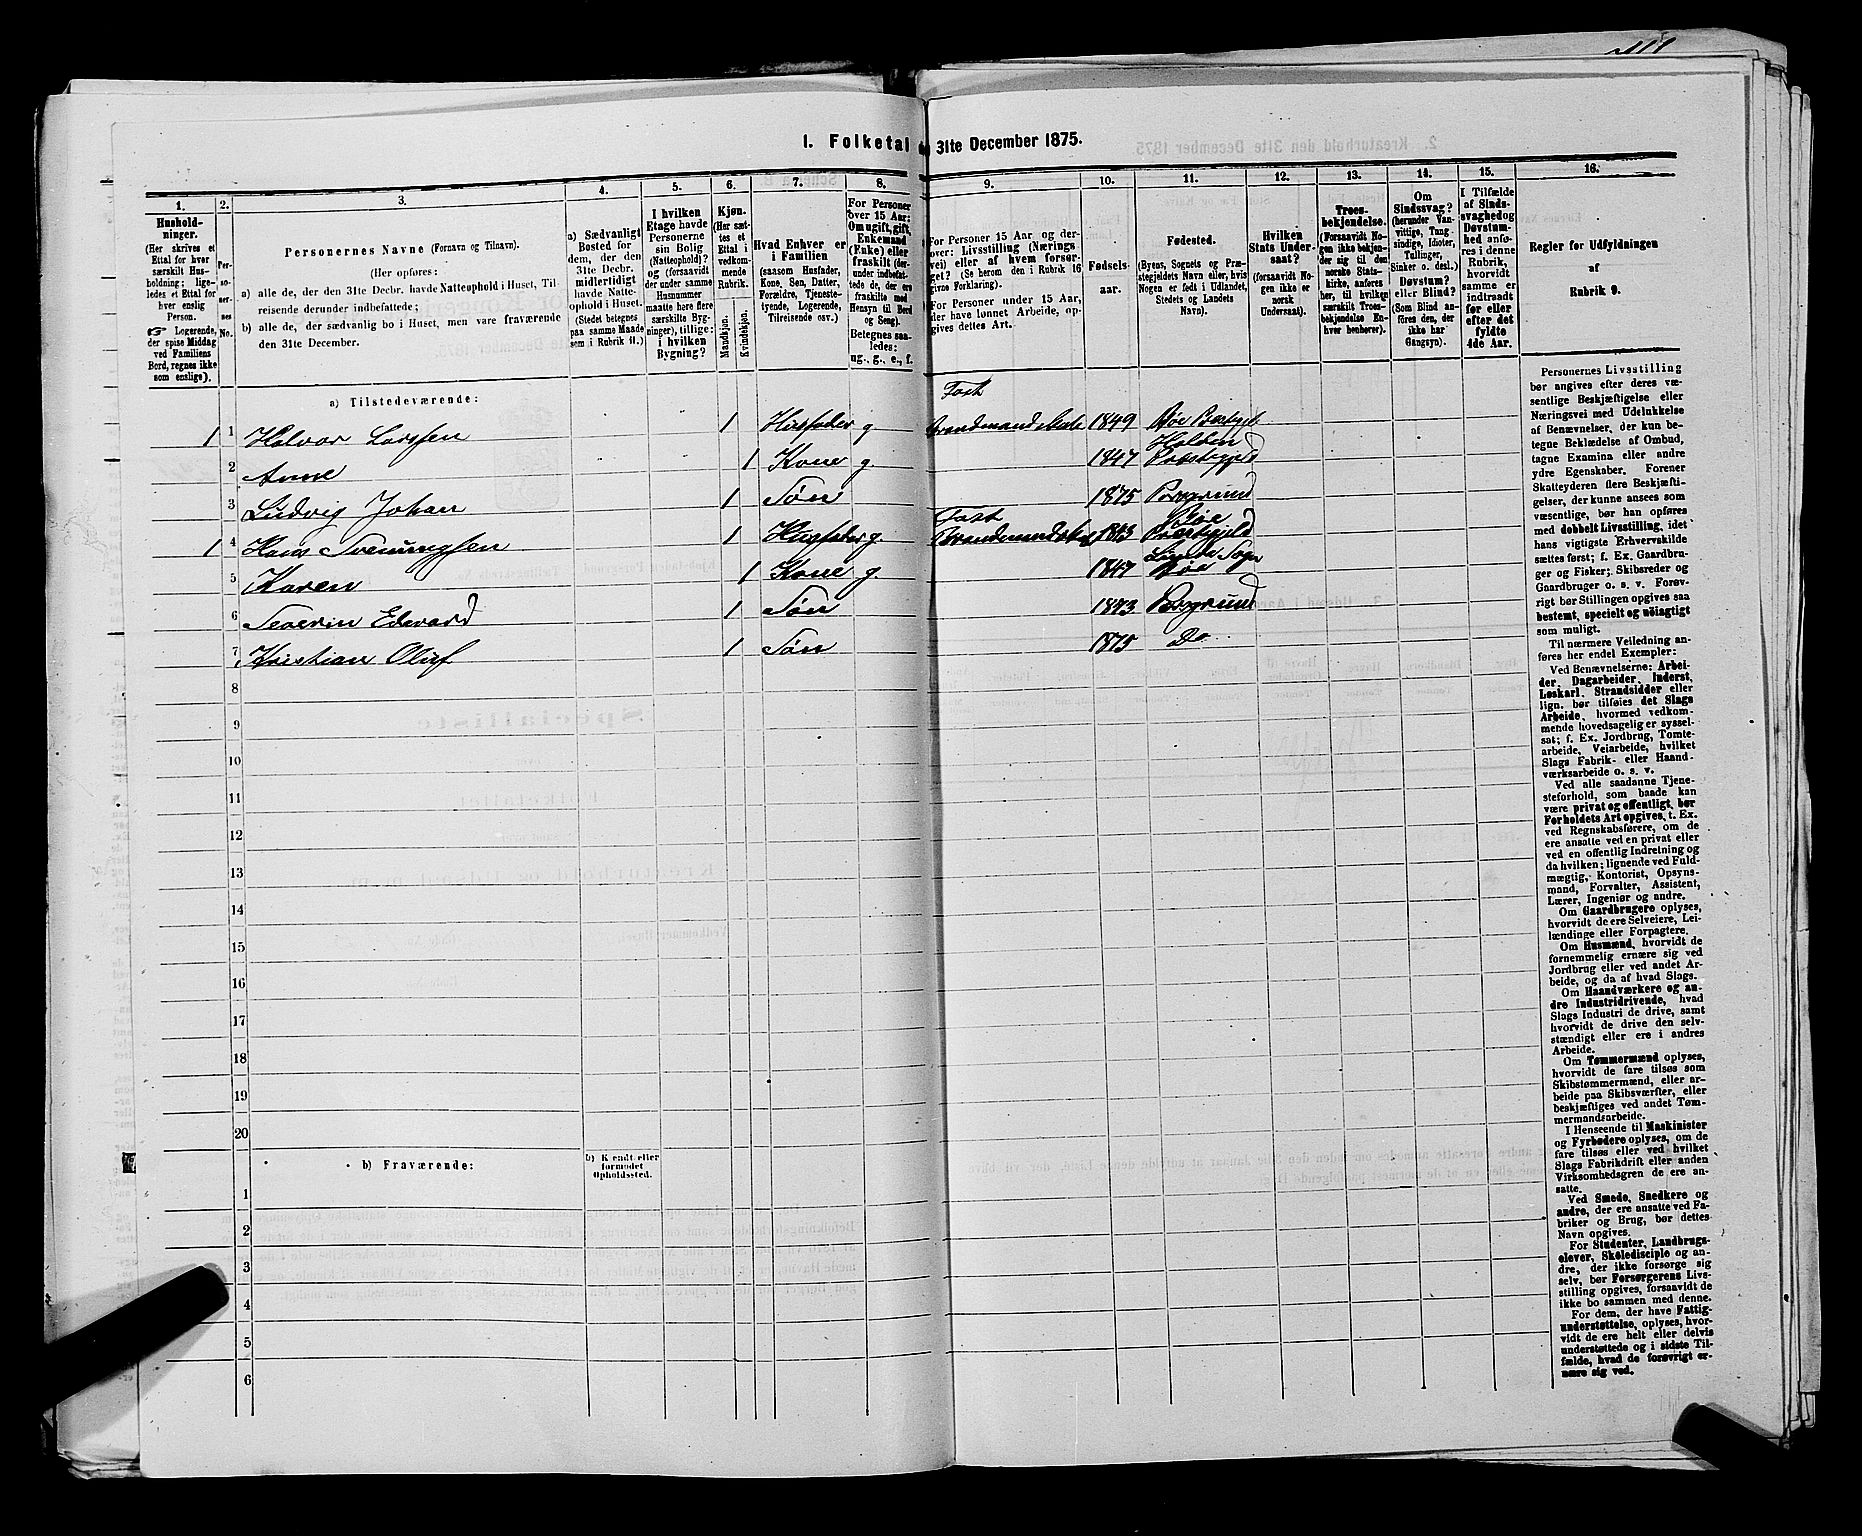 1. Folketal den 31te December 1875.
1.
Hushold-
ninger.
(Her skrives et
Ettal for hver
særskilt Hus-
holdning; lige-
ledes et Ettal for
hver enslig
Person.
Logerende,
der spise Middag
ved Familiens
Bord, regnes ikke
som enslige).
2.
Per-
soner-
nes
No.
3.
Personernes Navne (Fornavn og Tilnavn).
(Her opføres:
a) alle de, der den 31te Decbr. havde Natteophold i Huset, Til-
reisende derunder indbefattede;
b) alle de, der sædvanlig bo i Huset, men vare fraværende
den 31te December.
4.
a) Sædvanligt
Bosted for
dem, der den
31te Decbr.
midlertidigt
havde Natte-
ophold i Huset.
(Stedet betegnes
paa samme Maade
som i Rubrik 11.)
5.
I hvilken
Etage havde
Personerne
sin Bolig
(Natteophold)?
og (forsaavidt
der under samme
Husnummer
maatte høre flere
særskilte Byg-
ninger), tillige:
i hvilken
Bygning?
6.
Kjøn.
(Her sæt-
tes et
Ettal i
vedkom-
mende
Rubrik.
Mandkjøn.
Kvindekjøn.
7.
Hvad Enhver er
i Familien
(saasom Husfader,
Kone, Søn, Datter,
Forældre, Tjeneste-
tyende, Logerende,
Tilreisende osv.)
8.
For Personer
over 15 Aar:
Om ugift, gift,
Enkemand
(Enke) eller
fraskilt (der-
under indbefat-
tede de, der ere
fraskilte med
Hensyn til Bord
og Seng).
Betegnes saa-
ledes:
ug., g., e., f.
9.
For Personer 15 Aar og der-
over: Livsstilling (Nærings-
vei) eller af hvem forsør-
get? (Se herom den i Rubrik 16
givne Forklaring).
For Personer under 15 Aar,
der have lønnet Arbeide, op-
gives dettes Art.
10.
Fødsels-
aar.
11.
Fødested.
(Byens, Sognets og Præ-
stegjeldets Navn eller, hvis
Nogen er født i Udlandet,
Stedets og Landets
Navn).
12.
Hvilken
Stats Under-
saat?
(forsaavidt No-
gen ikke er
norsk
Undersaat).
13.
Troes-
bekjendelse.
(Forsaavidt No-
gen ikke bekjen-
der sig til den
norske Stats-
kirke, anføres
her, til hvilken
særskilt Troes-
bekjendelse En-
hver henhører).
14.
Om
Sindssvag?
(herunder Van-
vittige, Tung-
sindige, Idioter,
Tullinger,
Sinker o. desl.)
Døvstum?
eller Blind?
(Som Blind an-
føres den, der
ikke har
Gangsyn).
15.
I Tilfælde
af Sinds-
svaghed og
Døvstum-
hed anfø-
res i denne
Rubrik,
hvorvidt
samme er
indtraadt
før eller
efter det
fyldte
4de Aar.
16.
Regler for Udfyldningen
af
Rubrik 9.
a) Tilstedeværende:
1 1 Halvor Larssen 1 Husfader g. Fast Brandmand 1849 Bøe Præstgjeld
2 Anne 1 Kone g. 1847 Holden Præstegjeld
3 Ludvig Johan 1 Søn 1875 Porsgrund
1 4 Hans Svenungsen 1 Husfader g. Fast Brandmand 1843 Bøe Præstegjeld
5 Karen 1 Kone g. 1847 Sogn Bøe
6 Severin Edvard 1 Søn 1873 Porsgrund
7 Kristian Oluf 1 Søn 1875 Do
8
9
10
11
12
13
14
15
16
17
18
19
20
b) Fraværende:
b) Kjendt eller
formodet
Opholdssted.
1
2
3
4
5
6
Personernes Livsstilling
bør angives efter deres væ-
sentlige Beskjæftigelse eller
Næringsvei med Udelukkelse
af Benævnelser, der kun be-
tegne Beklædelse af Ombud,
tagne Examina eller andre
ydre Egenskaber. Forener
Skatteyderen flere Beskjæfti-
gelser, der kunne ansees som
væsentlige, bør han opføres
med dobbelt Livsstilling, idet
hans vigtigste Erhvervskilde
sættes først; f. Ex. Gaardbru-
ger og Fisker; Skibsreder og
Gaardbruger o. s. v. Forøv-
rigt bør Stillingen opgives saa
bestemt, specielt og nøiagtigt
som muligt.
Til nærmere Veiledning an-
føres her endel Exempler:
Ved Benævnelserne: Arbei-
der, Dagarbeider, Inderst,
Løskarl, Strandsidder eller
lign. bør tilføies det Slags
Arbeide, hvormed vedkom-
mende hovedsagelig er syssel-
sat; f. Ex. Jordbrug, Tomte-
arbeide, Veiarbeide, hvilket
Slags Fabrik- eller Haand-
værksarbeide o. s. v.
Ved alle saadanne Tjene-
steforhold, som baade kan
være privat og offentligt, bør
Forholdets Art opgives, t. Ex.
ved Regnskabsførere, om de
ere ansatte ved en privat eller
ved en offentlig Indretning og
da hvilken; lignende ved Fuld-
mægtig, Kontorist, Opsyns-
mand, Forvalter, Assistent,
Lærer, Ingeniør og andre.
Om Gaardbrugere oplyses,
hvorvidt de ere Selveiere, Lei-
lændinge eller Forpagtere.
Om Husmænd, hvorvidt de
fornemmelig ernære sig ved
Jordbrug eller ved andet Ar-
beide, og da af hvad Slags.
Om Haandværkere og an-
dre Industridrivende, hvad
Slags Industri de drive, samt
hvorvidt de drive den selv-
stændigt eller ere i andres
Arbeide.
Om Tømmermænd oplyses,
hvorvidt de fare tilsøs som
Skibstømmermænd, eller ar-
beide paa Skibsværfter, eller
beskjæftiges ved andet Tøm-
mermandsarbeide.
I Henseende til Maskinister
og Fyrbødere oplyses, om de
fare tilsøs eller ved hvilket
Slags Fabrikdrift eller anden
Virksomhedsgren de ere an-
satte.
Ved Smede, Snedkere og
andre, der ere ansatte ved Fa-
briker og Brug, bør dettes
Navn opgives.
For Studenter, Landbrugs-
elever, Skoledisciple og an-
dre, der ikke forsørge sig
selv, bør Forsørgerens Livs-
stilling opgives, forsaavidt de
ikke bo sammen med denne.
For dem, der have Fattig-
understøttelse, oplyses, hvor-
vidt de ere helt eller delvis
understøttede og i sidste Til-
fælde, hvad de forøvrigt er-
nære sig ved.